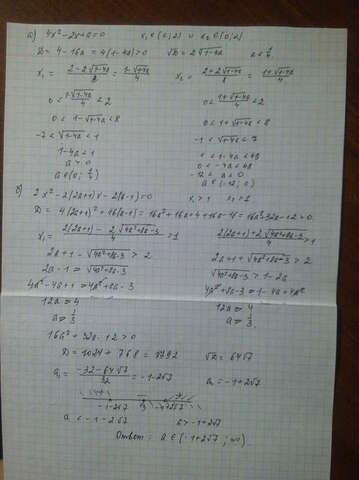 а) 4x² - 2x + a = 0 x₁ ∈ (0; 2) и x₂ ∈ (0; 2)
D = 4 - 16a = 4(1-4a) > 0 √D = 2√(1-4a) a < 1/4
x₁ = (2 - 2√(1-4a))/8 = (1-√(1-4a))/4 x₂ = (2 + 2√(1-4a))/8 = (1+√(1-4a))/4
0 < (1-√(1-4a))/4 < 2 0 < (1+√(1-4a))/4 < 2
0 < 1-√(1-4a) < 8 0 < 1+√(1-4a) < 8
-7 < √(1-4a) < 1 -1 < √(1-4a) < 7
1-4a < 1 1 < 1-4a < 49
a > 0 0 < -4a < 48
a ∈ (0; 1/4) -12 < a < 0
a ∈ (-12; 0)
2x² - 2(2a+1)x - 2(a-1) = 0 x₁ > 1 x₂ > 1
D = 4(2a+1)² + 16(a-1) = 16a² + 16a + 4 + 16a - 16 = 16a² + 32a - 12 > 0
x₁ = (2(2a+1) - 2√(4a²+8a-3))/4 > 1 (2(2a+1) + 2√(4a²+8a-3))/4 > 1
2a+1 - √(4a²+8a-3) > 2 2a+1 + √(4a²+8a-3) > 2
2a - 1 > √(4a²+8a-3) √(4a²+8a-3) > 1-2a
4a² - 4a + 1 > 4a² + 8a - 3 4a² + 8a - 3 > 1 - 4a + 4a²
12a > 4 12a > 4
a > 1/3 a > 1/3
16a² + 32a - 12 > 0
D = 1024 + 768 = 1792 √D = 64√7
a₁ = (-32-64√7)/32 = -1-2√7 a₂ = -1+2√7
-1-2√7 1/3 -1+2√7
a < -1-2√7 a > -1+2√7
Ответ: a ∈ (-1+2√7; ∞)